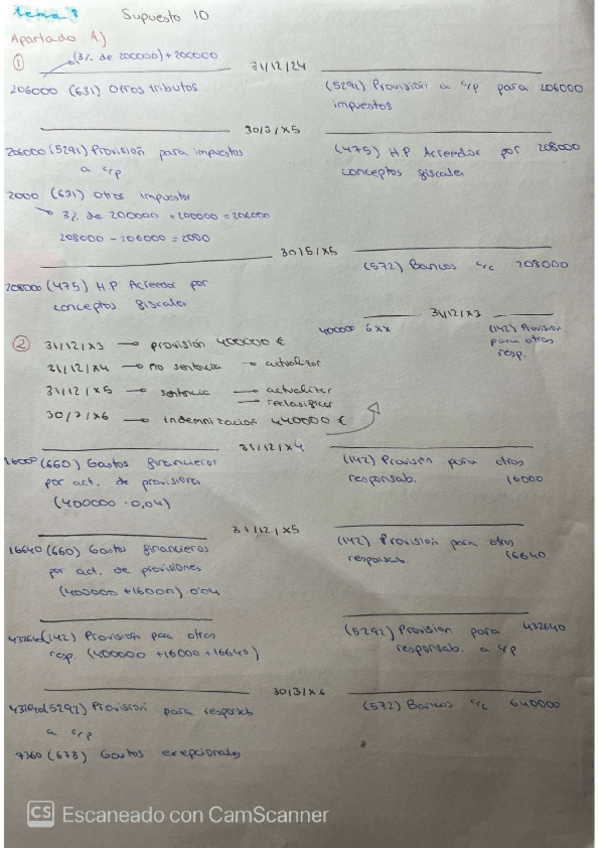 tema 8 Supuesto 10
Apartado A)
① (3% de 200000) + 200000
31/12/24
206000 (631) Otros tributos (5291) Provisión a c/p para 206000
impuestos
30/3/X5
206000 (5291) Provisión para impuestos (475) HP Acreedor por 208000
a c/p conceptos fiscales
2000 (631) Otros impuestos
3% de 200000 + 200000 = 206000
208000 - 206000 = 2000
30/5/X5
(572) Bancos c/c 208000
208000 (475) H.P Acreedor por
conceptos fiscales
31/12/X3
400000 6xx (142) Provision
para otras
resp.
② 31/12/X3 → provisión 400000 €
31/12/X4 → no sentencia → actualizar
31/12/X5 → sentencia → actualizar
→ reclasificar
30/3/X6 → indemnizacion 440000 €
31/12/X4
16000 (660) Gastos financieros (142) Provisión para otras
por act. de provisiones responsab. 16000
(400000 · 0,04)
31/12/X5
16640 (660) Gastos financieros (142) Provisión para otras
por act. de provisiones responsab. 16640
(400000 + 16000) · 0,04
432640 (142) Provisión para otras (5292) Provision para 432640
resp. (400000 + 16000 + 16640) responsab. a c/p
30/3/X6
432640 (5292) Provisión para responsab (572) Bancos c/c 440000
a c/p
7360 (678) Gastos excepcionales
CS Escaneado con CamScanner